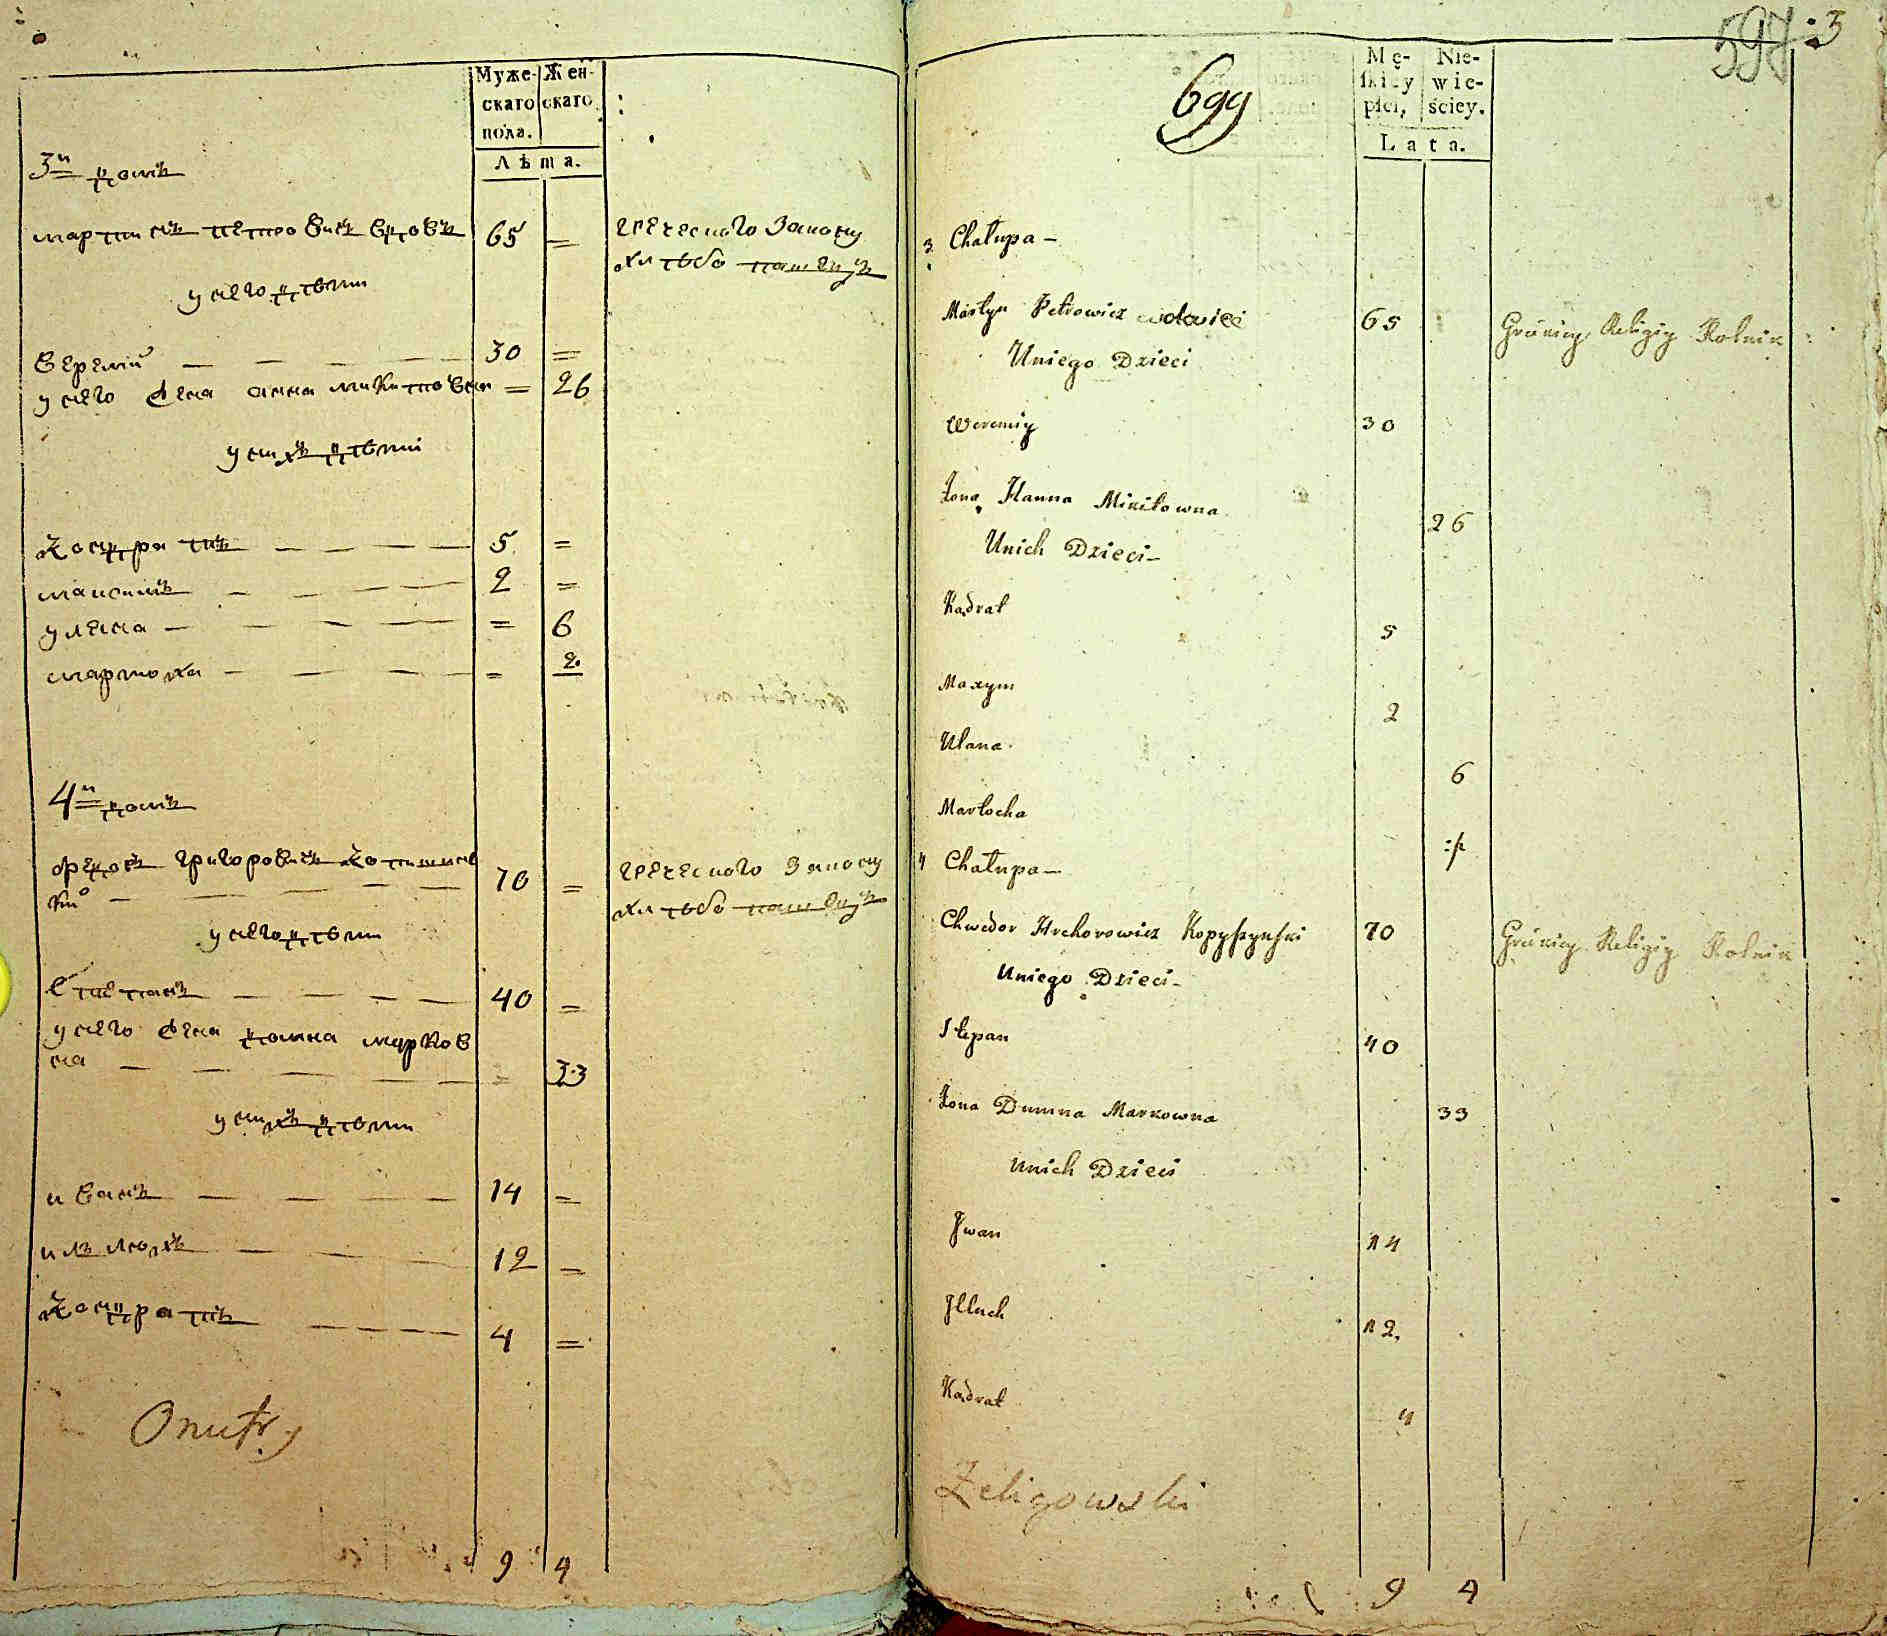 Муже-
скаго
пола.
Жен-
скаго
Лѣта.
3й домъ
мартинъ петровичъ вдовъ 65 =
греческого закону
хлѣбопашецъ
у него дѣти
веремiй 30 =
у него жена анна микитовна = 26
у нихъ дѣти
кондратъ 5 =
максимъ 2 =
уляна = 6
мартоха = 2
4й домъ
федоръ григоровичъ
70 =
греческого закону
хлѣбопашецъ
у него дѣти
степанъ 40 =
у него жена домна марков
на = 33
у нихъ дѣти
иванъ 14 =
12 =
кондратъ 4 =
9 4
597
3
699
Mę-
skiey
płci,
Nie-
wie-
ściey.
Lata.
3. Chałupa –
Martyn Petrowicz wdowiec 65 Gräkiey Religiy Rolnik
Uniego Dzieci
Weremiy 30
Żona Hanna Mikitowna 26
Unich Dzieci –
Kadrat 5
Maxym 2
Ulana 6
Martocha
4 Chałupa –
Chwedor Hrehorowicz Kopyszynski 70 Gräkiey Religiy Rolnik
Uniego Dzieci –
Stepan 40
Żona Dumna Markowna 33
Unich Dzieci
Jwan 14
Jlluch 12.
Kadrat 4
Żeligowski
9 4